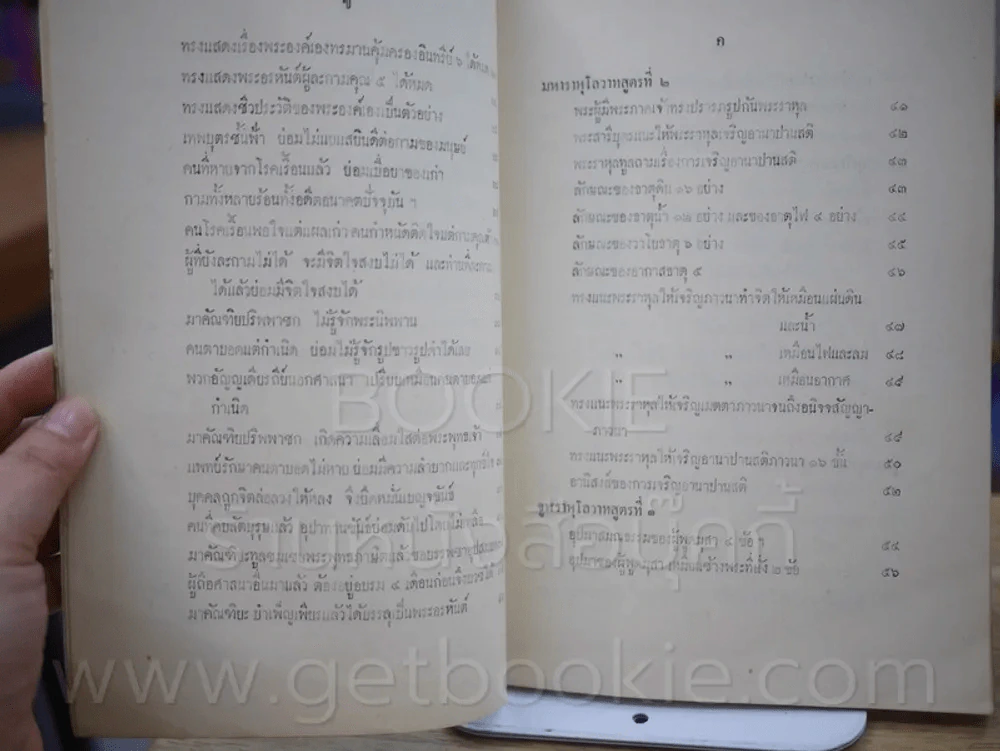 ทรงแสดงเรื่องพระองค์เองทรมานคุ้มครองอินทรีย์ ๖ ได้หมด
ทรงแสดงพระอรหันต์ผู้ละกามคุณ ๕ ได้หมด
ทรงแสดงชีวประวัติของพระองค์เองเป็นตัวอย่าง
เทพบุตรชั้นฟ้า ย่อมไม่แยแสยินดีต่อกามของมนุษย์
คนที่หายจากโรคเรื้อนแล้ว ย่อมเบื่อยาของเก่า
กามทั้งหลายร้อนทั้งอดีตอนาคตปัจจุบัน ฯ
คนโรคเรื้อนพอใจแต่แผลเก่า คนกำหนัดติดใจแต่กามคุณ
ผู้ที่ยังละกามไม่ได้ จะมีจิตใจสงบไม่ได้ และท่านที่ละกาม
ได้แล้วย่อมมีจิตใจสงบได้
มาคัณฑิยปริพพาชก ไม่รู้จักพระนิพพาน
คนตาบอดแต่กำเนิด ย่อมไม่รู้จักรูปขาวรูปดำได้เลย
พวกอัญญเดียรถีย์นอกศาสนา เปรียบเหมือนคนตาบอด
กำเนิด
มาคัณฑิยปริพพาชก เกิดความเลื่อมใสต่อพระพุทธเจ้า
แพทย์รักษาคนตาบอดไม่หาย ย่อมมีความลำบากและทุกข์ใจ
บุคคลถูกจิตล่อลวงให้หลง จึงยึดหมั่นเบญจขันธ์
คนที่คบสัตบุรุษแล้ว อุปาทานขันธ์ย่อมดับไปโดยไม่เหลือ
มาคัณฑิยะทูลชมเชยพระพุทธภาษิตแล้วขอบรรพชาอุปสมบท
ผู้ถือศาสนาอื่นมาแล้ว ต้องอยู่อบรม ๔ เดือนก่อนจึงบวชได้
มาคัณฑิยะ บำเพ็ญเพียรแล้วได้บรรลุเป็นพระอรหันต์
ค
มหาราหุโลวาทสูตรที่ ๒
พระผู้มีพระภาคเจ้าทรงปรารภรูปกับพระราหุล ๔๑
พระสารีบุตรแนะให้พระราหุลเจริญอานาปานสติ ๔๒
พระราหุลทูลถามเรื่องการเจริญอานาปานสติ ๔๓
ลักษณะของธาตุดิน ๑๖ อย่าง ๔๓
ลักษณะของธาตุน้ำ ๑๒ อย่าง และของธาตุไฟ ๔ อย่าง ๔๔
ลักษณะของวาโยธาตุ ๖ อย่าง ๔๕
ลักษณะของอากาสธาตุ ๕ ๔๖
ทรงแนะพระราหุลให้เจริญภาวนาทำจิตให้เหมือนแผ่นดิน
และน้ำ ๔๗
,, ,, เหมือนไฟและลม ๔๘
,, ,, เหมือนอากาศ ๔๙
ทรงแนะพระราหุลให้เจริญเมตตาภาวนาจนถึงอนิจจสัญญา-
ภาวนา ๔๙
ทรงแนะพระราหุลให้เจริญอานาปานสติภาวนา ๑๖ ขั้น ๕๐
อานิสงส์ของการเจริญอานาปานสติ ๕๒
จูฬราหุโลวาทสูตรที่ ๑
อุปมาสมณธรรมของผู้พูดมุสา ๔ ข้อ ฯ ๕๔
อุปมาของผู้พูดมุสา เหมือนช้างพระที่นั่ง ๒ ข้อ ๕๖
BOOKIE
ร้านหนังสือบุ๊คกี้
www.getbookie.com